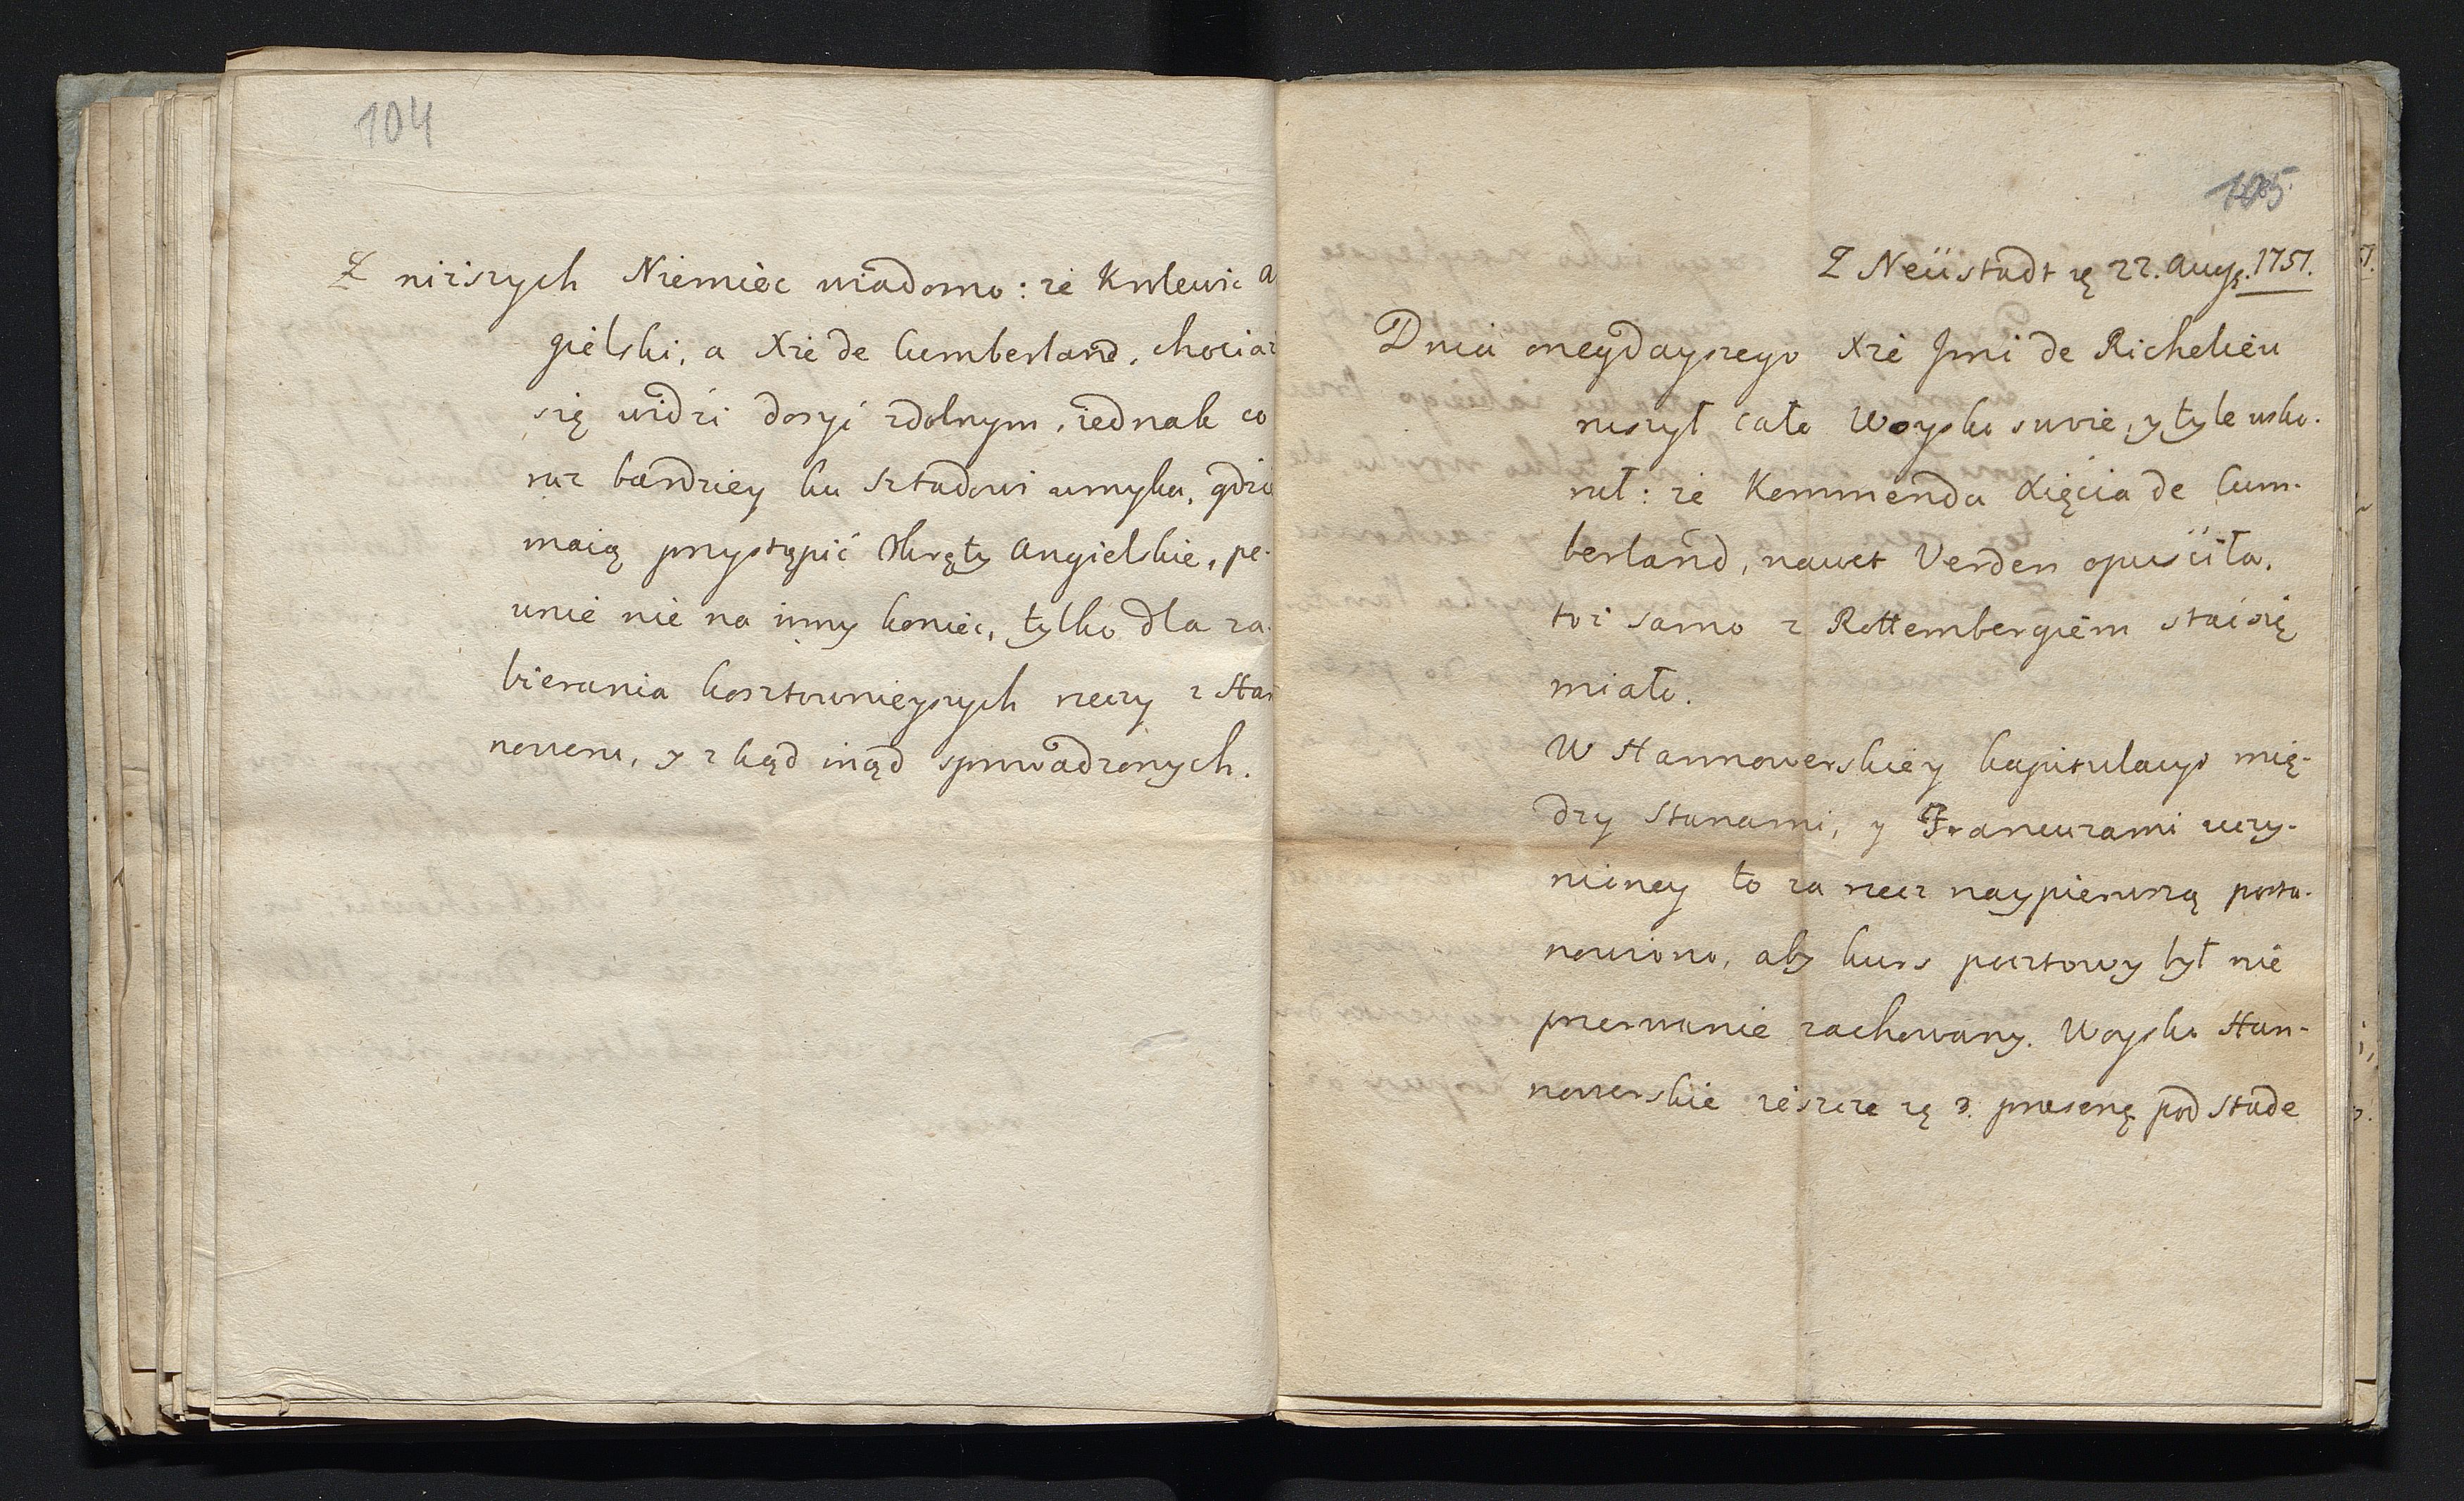 104
Z niższych Niemiec wiadomo: że Krolewic A
gielski, a Xże de Cumberland, chociaż
się widzi dosyć zdolnym, iednak co
raz bardziey ku Sztadowi umyka, gdzie
maią przystąpić Okręty Angielskie, pe-
wnie nie na inny koniec, tylko dla za-
bierania kosztownieyszych rzeczy z Han
noweru, y z kąd inąd sprowadzonych.
105
Z Neüstadt 22. Aug. 1757.
Dnia onegdayszego Xże Jmć de Richelieu
ruszył całe Woysko swoie, y tyle wsku-
rał: że Kommenda Xięcia de Cum-
berland, nawet Verden opuściła.
toż samo z Rottembergiem stać się
miało.
W Hannowerskiey kapitulacyi mię-
dzy Stanami, y Francuzami uczy-
nioney to za rzecz naypierwszą posta-
nowiono, aby kurs pocztowy był nie
przerwanie zachowany. Woysko Han-
nowerskie ieszcze 3. praesentis pod Stade